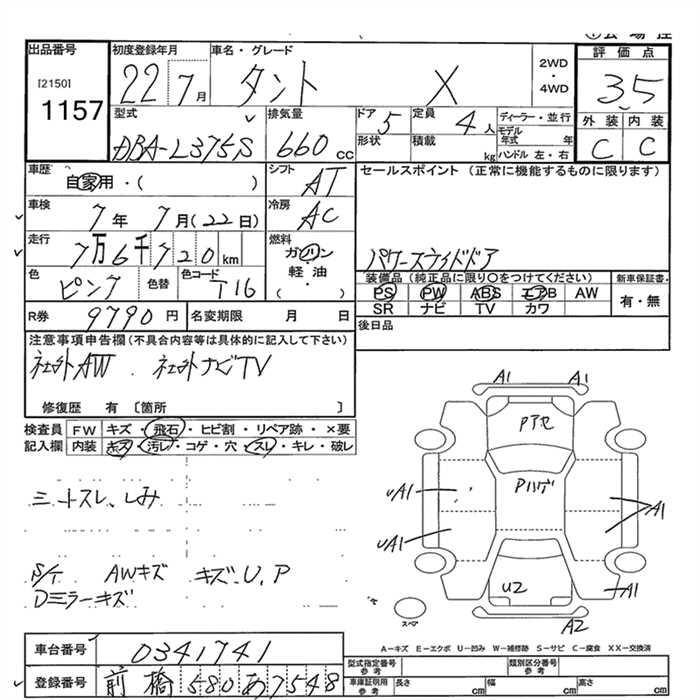 出品番号
[2150]
1157
初度登録年月
22 7月
車名・グレード
タント X
2WD
・
4WD
評価点
3.5
外装 内装
C C
型式
DBA-L375S
排気量
660 cc
ドア 5
形状
定員 4人
積載 kg
ディーラー・並行
モデル年式 年
ハンドル 左・右
車歴
自家用・( )
シフト
AT
セールスポイント (正常に機能するものに限ります)
パワースライドドア
車検
7年 7月(22日)
冷房
AC
走行
7万6千720km
燃料
ガソリン
軽油
( )
色
ピンク
色替
色コード
T16
装備品(純正品に限り○をつけてください)
PS PW ABS エアB AW
SR ナビ TV カワ
新車保証書
有・無
R券 9790円
名変期限 月 日
後日品
注意事項申告欄(不具合内容等は具体的に記入して下さい)
社外AW . 社外ナビTV
修復歴 有 〔箇所 〕
検査員記入欄
FW キズ・飛石・ヒビ割・リペア跡・×要
内装 キズ・汚レ・コゲ・穴・スレ・キレ・破レ
シートスレ、しみ
S/T AWキズ キズ、U、P
Dミラーキズ
A1 A1
Pアセ
Pハゲ
UA1
UA1
A1
A1
U2
A2
スペア
A-キズ E-エクボ U-凹み W-補修跡 S-サビ C-腐食 XX-交換済
車台番号
0341741
登録番号
前橋 580 あ 7548
型式指定番号
参考
類別区分番号
参考
車庫証明用
参考
長さ cm
幅 cm
高さ cm